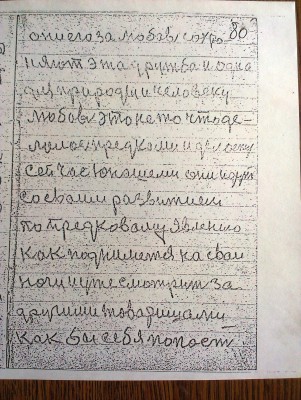 80
они его за любовь сохро
няют эта дружба и одна
для природы и человеку
любовь это не то что де-
лалось предками и делоему
сейчас юношеми они идут
со своим развитием
по предковому явлению
как поднимется на свои
ноги и уже смотрит за
другими товарищами
как бы себя попаст